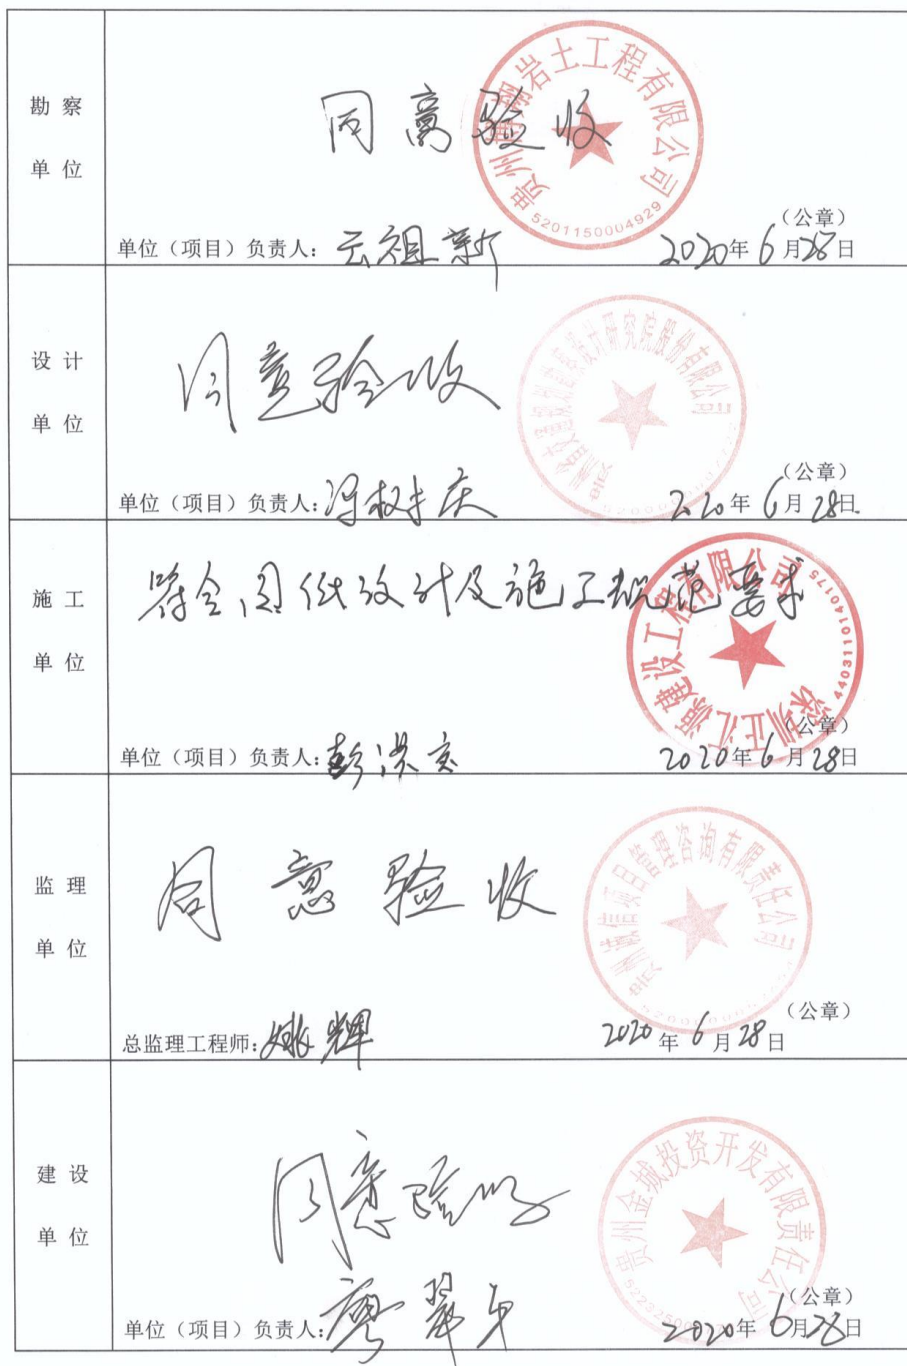 勘察
单位
同意验收
岩土工程有限公司
5201150004929
(公章)
单位(项目)负责人: 云祖新 2020年6月28日
设计
单位
同意验收
设计研究院股份有限公司
(公章)
单位(项目)负责人: 冯树庆 2020年6月28日
施工
单位
符合图纸设计及施工规范要求
深圳正汇源建设工程有限公司
4403110140175
(公章)
单位(项目)负责人: 彭洪文 2020年6月28日
监理
单位
同意验收
贵州诚信项目管理咨询有限责任公司
(公章)
总监理工程师: 姚辉 2020年6月28日
建设
单位
同意验收
贵州金城投资开发有限责任公司
(公章)
单位(项目)负责人: 2020年6月28日